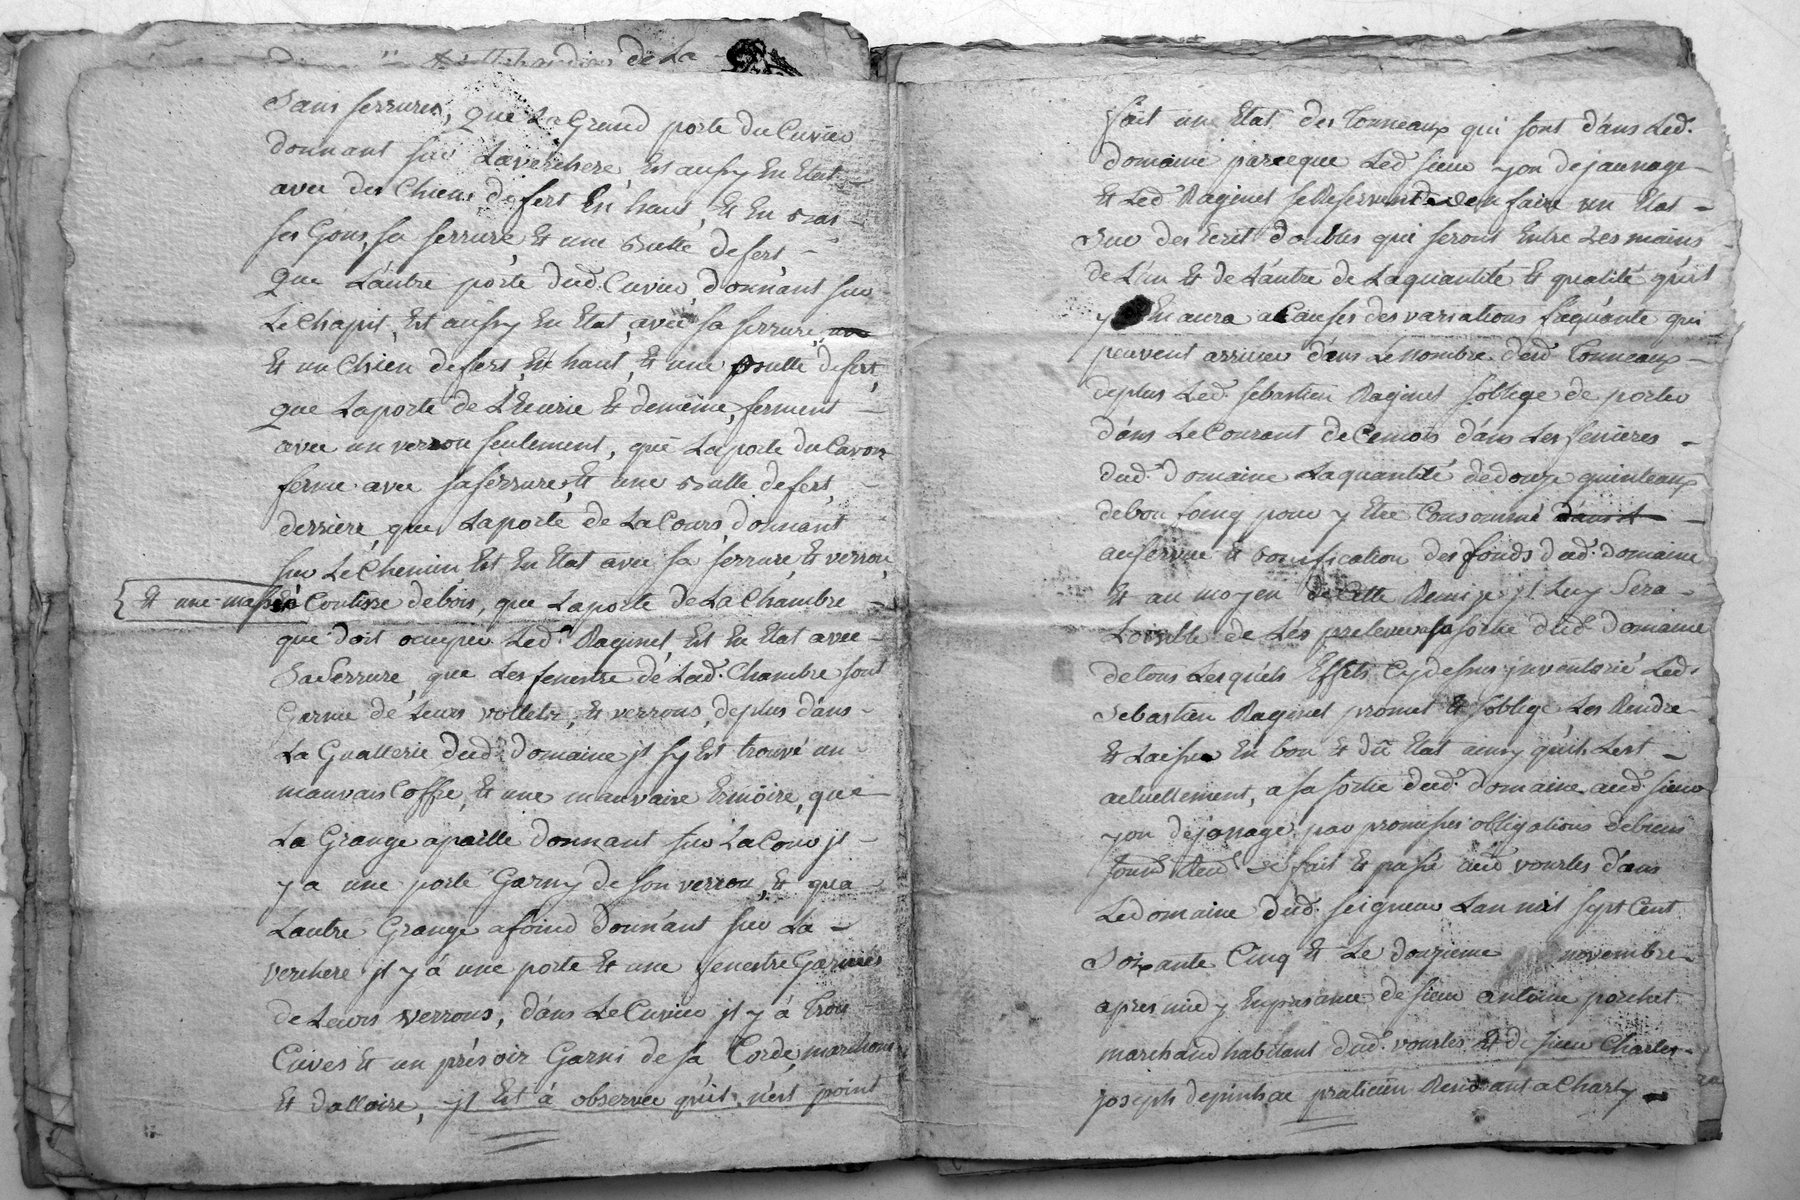 de La
Sans serrures, que La Grand porte du Cuvier
donnant sur Laverchere Est aussy En Etat
avec des Chiens de fert En haut, Et En bas
ses Gons, sa serrure Et une Balle de fert
Que L'autre porte dud. Cuvier, donnant sur
Le Chapit, Est aussy En Etat, avec sa serrure,
Et un Chien de fert, En haut, Et une Balle de fert,
que Laporte de L'Ecurie Et domaine, ferment
avec un verrou seulement, que Laporte du Cavon
ferme avec sa serrure, Et une Balle de fert,
derriere, que Laporte de La Cours, donnant
sur Le Chemin, Est En Etat avec sa serrure Et verrou,
Et une Coulisse de bois, que Laporte de La Chambre
que doit occuper Led. Raginel, Est En Etat avec
Sa Serrure, que Les fenestre de Lad. Chambre sont
Garnie de Leurs volletz, Et verrous, de plus dans
La Guallerie dud. domaine jl sy Est trouvé un
mauvais Coffre, Et une mauvaise Ermoire, que
La Grange apaille donnant sur La Cour jl
y a une porte Garny de son verrou, Et qua
Lautre Grange afoind donnant sur La
verchere jl y à une porte Et une fenestre Garnies
de Leurs verrous, dans Le Cuvier jl y à Trois
Cuves Et un présoir Garni de sa Corde,
Et dalloire, jl Est à observer qu'il n'est point
fait un Etat des Tonneaux qui sont dans Led.
domaine parceque Led. sieur yon de jaunage
Et Led. Raginel se Reservent den faire un Etat
Sur des Ecrit doubles qui seront Entre Les mains
de L'un Et de L'autre de La quantité Et qualité qu'il
y En aura a Causes des variations fréquante qui
peuvent arriver dans Le nombre desd. Tonneaux
deplus Led. Sebastien Raginel s'oblige de porter
dans Le Courant de Cemois dans Les fenieres
dud. domaine La quantité dedouze quinteaux
debon foing pour y Etre Consommé
au service Et Bonification des fonds dud. domaine
Et au moyen de Cette Remise jl Luy Sera
Loisible de Les prelever a sa sortie dud. domaine
de tous Les quels Effets Cy dessus jnventorié Led.
Sebastien Raginel promet Et s'oblige Les Rendre
Et Laisser En bon Et dû Etat ainsy qu'ils Lest
actuellement, a sa sortie dud. domaine aud. sieur
yon de jonage par promesses obligations de biens
fait Et passé aud. vourles dans
Le domaine dud. seigneur Lan mil sept Cent
Soixante Cinq Et Le douzieme novembre
apres midy En presance de sieur antoine porchet
marchand habitant dud. vourles Et de sieur Charles
joseph depinhac praticien Residant a Charly